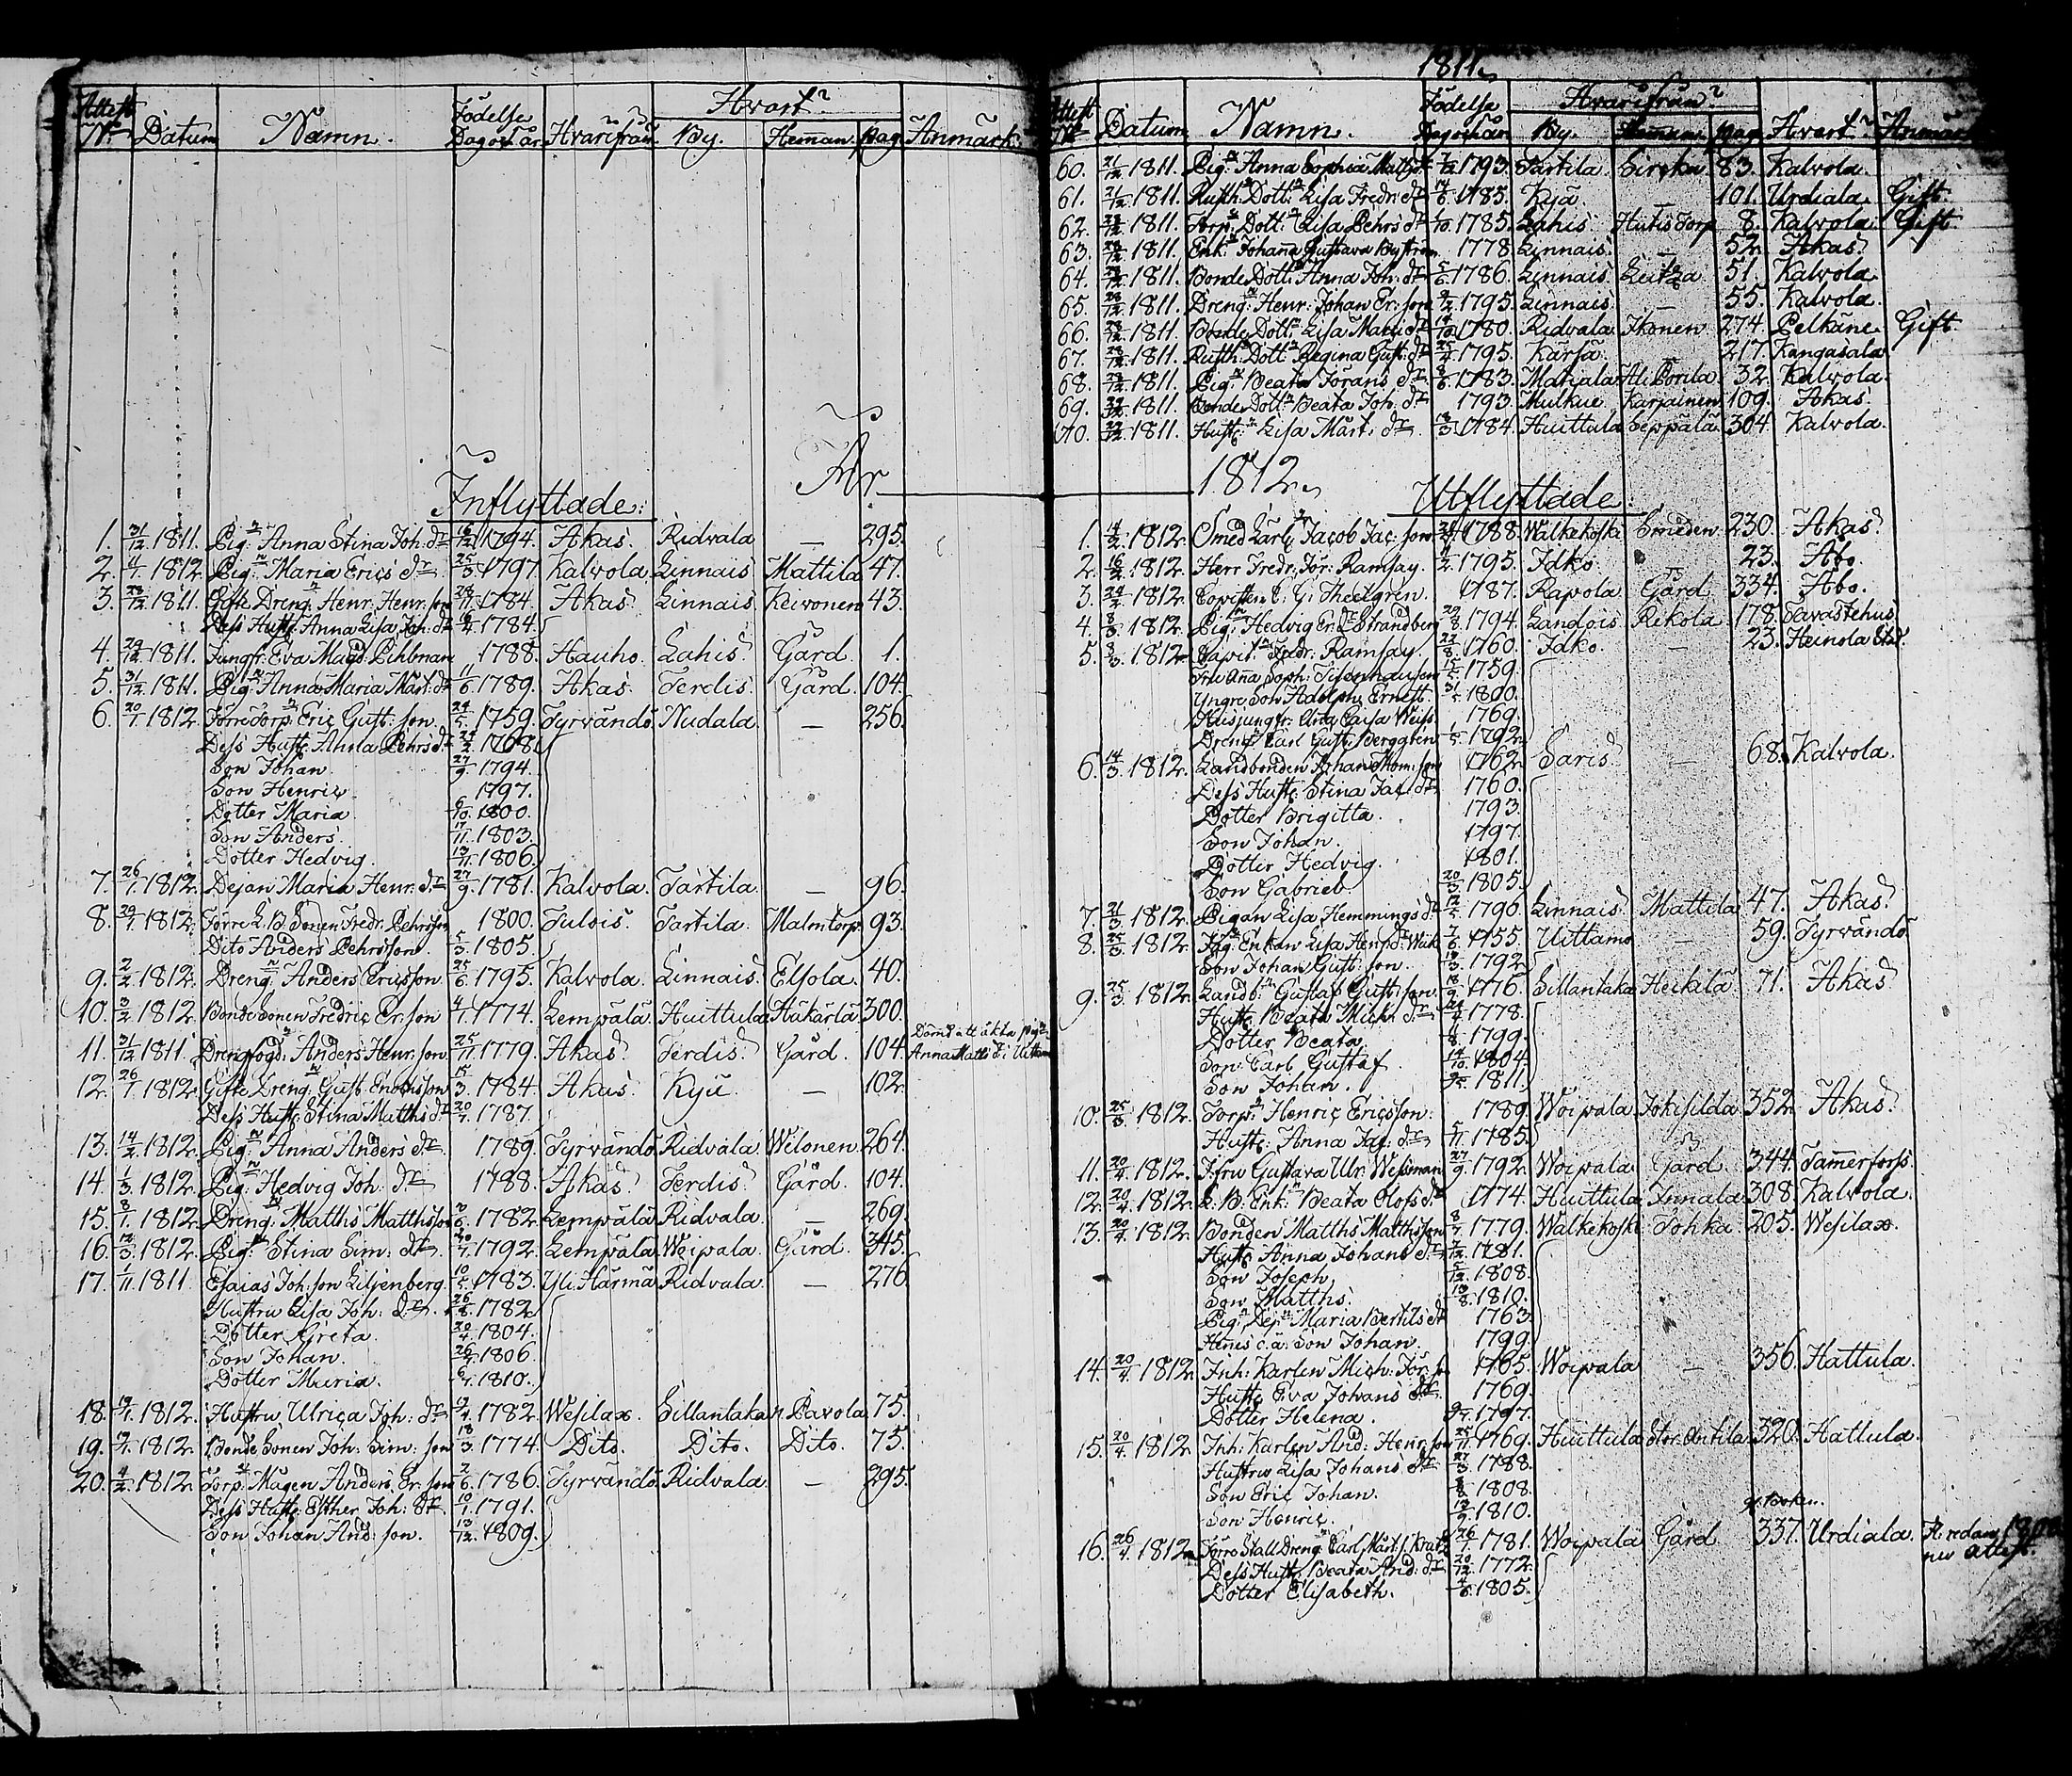 Attest N:o Datum Namn. Födelse Dag och år Hvarifrån Hvart? By. Hemman. Pag. Anmärk:
År
Inflyttade:
1. 31/12 1811. Pig:n Anna Stina Joh: dr 16/12 1794. Akas. Ridvala — 295.
2. 11/1 1812. Pig:n Maria Erics dr 25/3 1797. Kalvola Linnais Mattila 47.
3. 28/12 1811. Gifte Dreng:n Henr: Henr: son 1784. Akas Linnais Keivonen 43.
Dess Hust: Anna Lisa Joh: dr 1784.
4. 29/12 1811. Jungfr: Eva Magd: Pihlman 1788. Hauho. Lahis. Gård. 1.
5. 31/12 1811. Pig:n Anna Maria Märt: dr 11/6 1789. Akas. Ferdis. Gård. 104.
6. 20/1 1812. Förre Torp:n Eric Gust: son. 24/5 1759. Tyrvändö. Nudala. — 256.
Dess Hust: Anna Pehrs dr 24/2 1768.
Son Johan. 27/9 1794.
Son Henric. 1797.
Dotter Maria. 6/10 1800.
Son Anders. 17/11 1803.
Dotter Hedvig. 13/11 1806.
7. 26/1 1812. Dejan Maria Henr: dr 27/9 1781. Kalvola. Tartila. — 96.
8. 29/1 1812. Förre L. B Sonen Fredr: Pehrsson 1800. Tulois. Tartila. Malmtorp 93.
Dito Anders Pehrsson. 5/3 1805.
9. 2/2 1812. Dreng:n Anders Ericsson 25/6 1795. Kalvola. Linnais. Elsola. 40.
10. 3/2 1812. Bonde Sonen Fredric Er: son 4/1 1774. Lempälä. Huittula Hakarla 300.
11. 31/12 1811. Drengfogd:n Anders Henr: son. 25/11 1779. Akas. Ferdis. Gård. 104. Dömd att äkta pig:n
Anna Matts dr i Uittamo
12. 26/1 1812. Gifte Dreng:n Gust: Enochsson 15/3 1784. Akas. Kyä. — 102.
Dess Hust: Stina Matths dr 20/7 1787.
13. 14/2 1812. Pig:n Anna Anders dr 1789. Tyrvändö Ridvala Wilonen 264.
14. 1/3 1812. Pig:n Hedvig Joh: dr 1788. Akas. Ferdis. Gård. 104.
15. 8/1 1812. Dreng:n Matths Matthsson 1782. Lempälä Ridvala. — 269.
16. 12/3 1812. Pig:n Stina Sim: dr 1792. Lempälä. Woipala. Gård. 345.
17. 1/11 1811. Esaias Joh: son Liljenberg. 10/5 1783. Yli Härmä Ridvala. — 276.
Hustru Lisa Joh: dr 26/8 1782.
Dotter Greta. 20/4 1804.
Son Johan. 1806.
Dotter Maria. 1810.
18. 1812. Hustru Ulrica Joh: dr 1782. Wesilax. Sillantaka N. Pavola 75.
19. 1812. Bonde Sonen Joh: Sim: son 18/3 1774. Dito. Dito. Dito. 75.
20. 4/2 1812. Torp:n Mågen Anders Er: son 7/6 1786. Tyrvändö. Ridvala. — 295.
Dess Hust: Esther Joh: dr 10/1 1791.
Son Johan And: son. 13/12 1809.
1811.
Attest N:o Datum Namn. Födelse Dag och år Hvarifrån? By. Hemman. Pag. Hvart? Anmärk
60. 21/12 1811. Pig:n Anna Sophia Matths dr 1793. Tartila. Sirska 83. Kalvola.
61. 21/12 1811. Rusth: Dott:n Lisa Fredr: dr 17/6 1785. Kyä. — 101. Urdiala. Gift.
62. 1811. Torp: Dott:n Lisa Pehrs dr 1785. Lahis. Hutis Torp 8. Kalvola. Gift
63. 1811. Enk:n Johana Gustava Byström 1778. Linnais. — 52. Akas.
64. 1811. Bonde Dott:n Anna Joh: dr 5/6 1786. Linnais. Leitza 51. Kalvola.
65. 28/12 1811. Dreng:n Henr: Johan Er: son 1795. Linnais. — 55. Kalvola.
66. 28/12 1811. Bonde Dott:n Lisa Matts dr 1780. Ridvala. Ihonen 274. Pelkäne. Gift
67. 28/12 1811. Rusth: Dott:n Regina Gust: dr 25/4 1795. Karsa. — 217. Kangasala
68. 1811. Pig:n Beata Jörans dr 8/6 1783. Matiala Ali Porila. 32. Kalvola.
69. 1811. Bonde Dott:n Beata Joh: dr 1793. Mulkue Karjainen 109. Akas.
70. 1811. Hust:n Lisa Märt: dr 13/3 1784. Huittula Seppälä 304. Kalvola.
1812.
Utflyttade.
1. 14/2 1812. Smed Karl:n Jacob Jac: son 1788. Walkekoski Smeden 230. Akas.
2. 16/2 1812. Herr Fredr: Jör: Ramsay. 1795. Idko. 23. Åbo.
3. 24/2 1812. C: G: Theelgren. 1787. Rapola Gård. 334. Åbo.
4. 8/3 1812. Pig:n Hedvig Er: dr Strandberg 29/8 1794. Landois Rikola 178. Tavastehus
5. 8/3 1812. Capit:n Fredr: Ramsay. 22/8 1760. Idko. — 23. Heinola Stad.
Fru Ana Soph: Tisenhausen 15/5 1759.
Yngre Son Adolph Ernest. 31/5 1800.
Husjungfr: Caisa Weiss 1769.
Dreng:n Carl Gust: Berggren 1/5 1792.
6. 14/3 1812. Landbonden Johan Thom: son 1762. Saris — 68. Kalvola.
Dess Hust: Stina Jac: dr 1760.
Dotter Brigitta. 1793.
Son Johan. 1797.
Dotter Hedvig. 1801.
Son Gabriel. 20/3 1805.
7. 21/3 1812. Pigan Lisa Hemmings dr 12/5 1796. Linnais Mattila 47. Akas.
8. 25/3 1812. Enkan Lisa Henr: dr Wiik 7/6 1755. Uittamo — 59. Tyrvändö
Son Johan Gust: son. 1792.
9. 25/3 1812. Landb:n Gustaf Gust: son. 1776. Sillantaka Heikilä. 71. Akas
Hust: Beata Mich: dr 1778.
Dotter Beata. 1799.
Son Carl Gustaf. 14/10 1804.
Son Johan. 1811.
10. 25/3 1812. Torp:n Henric Ericsson. 1789. Woipala Jokisilda 352. Akas.
Hust: Anna Jac: dr 5/11 1785.
11. 20/4 1812. Jfru Gustava Ulr: Wessman 27/9 1792. Woipala Gård. 344. Tamerfors.
12. 20/4 1812. L: B: Enk:n Beata Olofs dr 1774. Huittula Innala 308. Kalvola.
13. 20/4 1812. Bonden Matths Matthsson 1779. Walkekoski Tohka 205. Wesilax.
Hust: Anna Johans dr 1781.
Son Joseph. 5/12 1808.
Son Matths. 13/8 1810.
Pig: Dej:n Maria Bertils dr 1763.
Hänes o. ä. Son Johan. 1799.
14. 20/4 1812. Inh: Karlen Mich: Jör: son 1765. Woipala — 356. Hattula.
Hust: Eva Johans dr 1769.
Dotter Helena. 1797.
15. 20/4 1812. Inh: Karlen And: Henr: son 25/11 1769. Huittula Stor Antila 320. Hattula.
Hustru Lisa Johans dr 27/3 1788.
Son Eric Johan. 1808.
Son Henric. 13/9 1810.
16. 26/4 1812. Förre Stall Dreng:n Carl Märt: s. 26/1 1781. Woipala Gård. 337. Urdiala. redan
ny attest.
Dess Hust: Beata And: dr 20/12 1772.
Dotter Elisabeth. 4/6 1805.